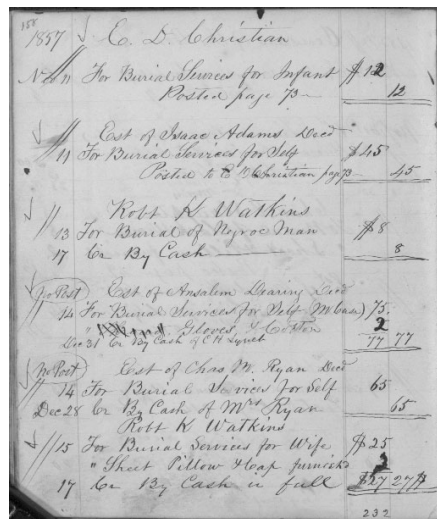 158
1857 E. D. Christian
Nov 11 For Burial Services for Infant $12
Posted page 73 12
Est of Isaac Adams Decd
// 11 For Burial Services for Self $45
Posted to E D Christian page 73 45
Robt K Watkins
// 13 For Burial of Negroe Man $8
17 Cr By Cash 8
(no Post) Est of Ansalem Dearing Decd
14 For Burial Services for Self (M Case) 75
" Gloves, & Cotton 2
Dec 31 Cr By Cash of C H Lynch 77 77
(no Post) Est of Chas M. Ryan Decd
// 14 For Burial Services for Self 65
Dec 28 Cr By Cash of Mrs Ryan 65
Robt K Watkins
// 15 For Burial Services for Wife $25
" Sheet Pillow & Cap furnishd 2
17 Cr By Cash in full $27 27
232